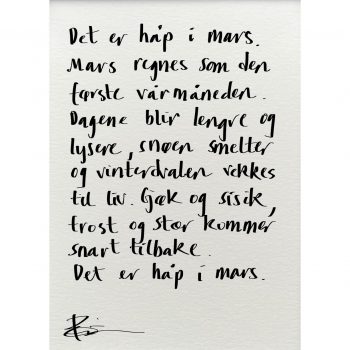 Det er håp i mars.
Mars regnes som den
første vårmåneden.
Dagene blir lengre og
lysere, snøen smelter
og vinterdvalen vekkes
til liv. Gjøk og sisik,
trost og stær kommer
snart tilbake.
Det er håp i mars.